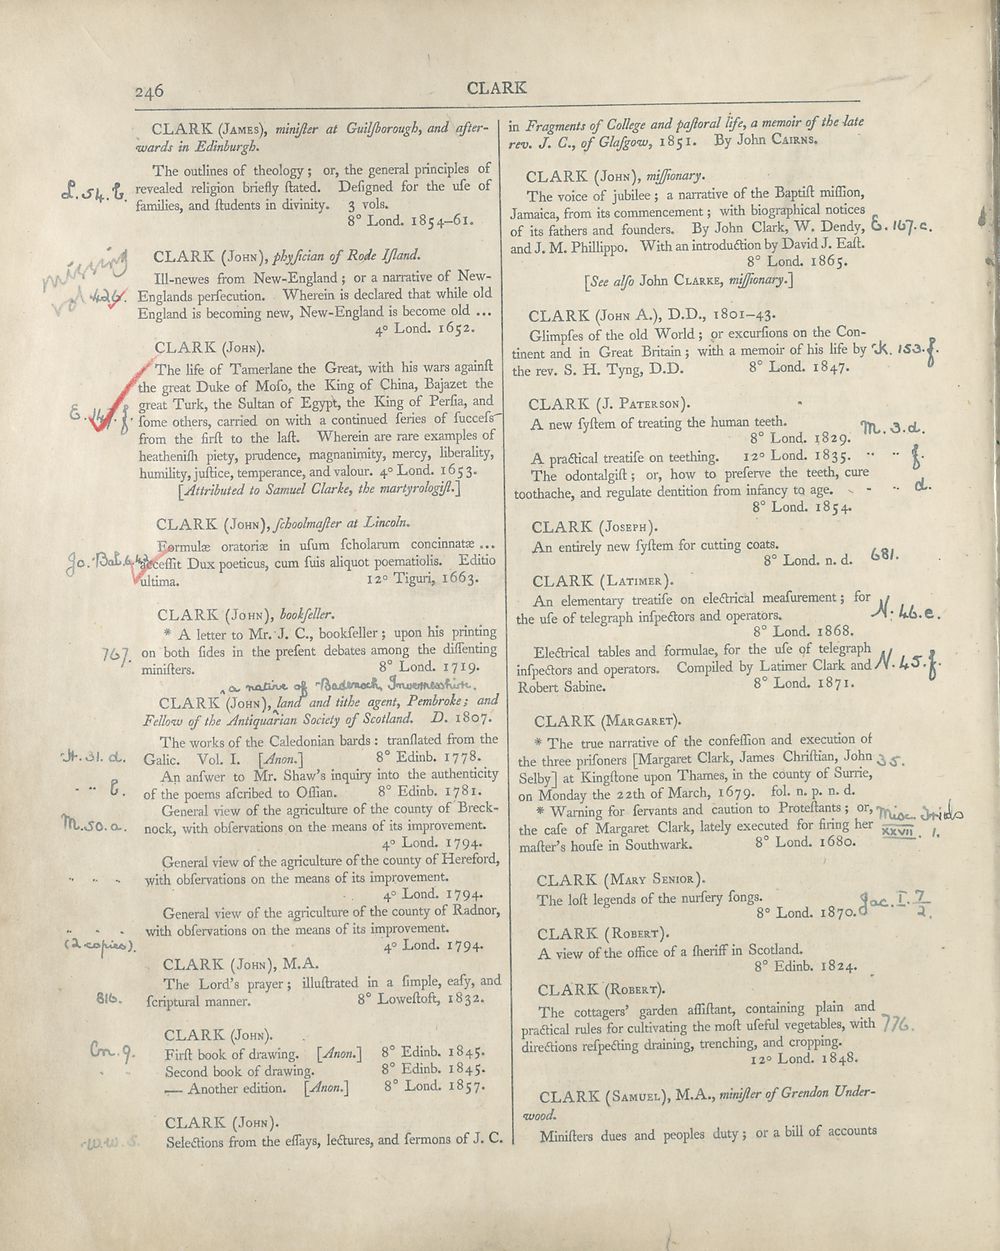 246
CLARK
CLARK (JAMES), miniſter at Guilſborough, and after-
wards in Edinburgh.
The outlines of theology; or, the general principles of
L. 54. b. revealed religion briefly ſtated. Deſigned for the uſe of
families, and ſtudents in divinity. 3 vols.
8° Lond. 1854-61.
missing
CLARK (JOHN), phyſician of Rode Iſland.
Ill-newes from New-England; or a narrative of New-
vol 426. Englands perſecution. Wherein is declared that while old
England is becoming new, New-England is become old ...
4° Lond. 1652.
CLARK (JOHN).
The life of Tamerlane the Great, with his wars againſt
the great Duke of Moſo, the King of China, Bajazet the
great Turk, the Sultan of Egypt, the King of Perſia, and
ſome others, carried on with a continued ſeries of ſucceſs
from the firſt to the laſt. Wherein are rare examples of
heatheniſh piety, prudence, magnanimity, mercy, liberality,
humility, juſtice, temperance, and valour. 4° Lond. 1653.
[Attributed to Samuel Clarke, the martyrologiſt.]
CLARK (JOHN), ſchoolmaſter at Lincoln.
Formulæ oratoriæ in uſum ſcholarum concinnatæ ...
acceſſit Dux poeticus, cum ſuis aliquot poematiolis. Editio
ultima. 12° Tiguri, 1663.
CLARK (JOHN), bookſeller.
* A letter to Mr. J. C., bookſeller; upon his printing
767. on both ſides in the preſent debates among the diſſenting
miniſters. 8° Lond. 1719.
a native of Badenoch, Invernesshire.
CLARK (JOHN), land and tithe agent, Pembroke; and
Fellow of the Antiquarian Society of Scotland. D. 1807.
The works of the Caledonian bards: tranſlated from the
H. 31. d. Galic. Vol. I. [Anon.] 8° Edinb. 1778.
An anſwer to Mr. Shaw's inquiry into the authenticity
" " b. of the poems aſcribed to Oſſian. 8° Edinb. 1781.
General view of the agriculture of the county of Breck-
M. 50. a. nock, with obſervations on the means of its improvement.
4° Lond. 1794.
General view of the agriculture of the county of Hereford,
" " " with obſervations on the means of its improvement.
4° Lond. 1794.
General view of the agriculture of the county of Radnor,
" " " with obſervations on the means of its improvement.
(2 copies). 4° Lond. 1794.
CLARK (JOHN), M.A.
The Lord's prayer; illuſtrated in a ſimple, eaſy, and
816. ſcriptural manner. 8° Loweſtoft, 1832.
CLARK (JOHN).
Cn. 9. Firſt book of drawing. [Anon.] 8° Edinb. 1845.
" " Second book of drawing. 8° Edinb. 1845.
— Another edition. [Anon.] 8° Lond. 1857.
CLARK (JOHN).
Selections from the eſſays, lectures, and ſermons of J. C.
in Fragments of College and paſtoral life, a memoir of the late
rev. J. C., of Glaſgow, 1851. By John CAIRNS.
CLARK (JOHN), miſſionary.
The voice of jubilee; a narrative of the Baptiſt miſſion,
Jamaica, from its commencement; with biographical notices
of its fathers and founders. By John Clark, W. Dendy, E. 167. c.
and J. M. Phillippo. With an introduction by David J. Eaſt.
8° Lond. 1865.
[See alſo John CLARKE, miſſionary.]
CLARK (JOHN A.), D.D., 1801-43.
Glimpſes of the old World; or excurſions on the Con-
tinent and in Great Britain; with a memoir of his life by K. 153. f.
the rev. S. H. Tyng, D.D. 8° Lond. 1847.
CLARK (J. PATERSON).
A new ſyſtem of treating the human teeth. M. 3. d.
8° Lond. 1829.
A practical treatiſe on teething. 12° Lond. 1835. " " f.
The odontalgiſt; or, how to preſerve the teeth, cure
toothache, and regulate dentition from infancy to age. " " d.
8° Lond. 1854.
CLARK (JOSEPH).
An entirely new ſyſtem for cutting coats. 681.
8° Lond. n. d.
CLARK (LATIMER).
An elementary treatiſe on electrical meaſurement; for
the uſe of telegraph inſpectors and operators. N. 46. e.
8° Lond. 1868.
Electrical tables and formulae, for the uſe of telegraph
inſpectors and operators. Compiled by Latimer Clark and N. 45. f.
Robert Sabine. 8° Lond. 1871.
CLARK (MARGARET).
* The true narrative of the confeſſion and execution of
the three priſoners [Margaret Clark, James Chriſtian, John 35.
Selby] at Kingſtone upon Thames, in the county of Surrie,
on Monday the 22th of March, 1679. fol. n. p. n. d.
* Warning for ſervants and caution to Proteſtants; or, Misc. Trials
the caſe of Margaret Clark, lately executed for firing her XXVII. 1.
maſter's houſe in Southwark. 8° Lond. 1680.
CLARK (MARY SENIOR).
The loſt legends of the nurſery ſongs. Jac. I. 7/2.
8° Lond. 1870.
CLARK (ROBERT).
A view of the office of a ſheriff in Scotland.
8° Edinb. 1824.
CLARK (ROBERT).
The cottagers' garden aſſiſtant, containing plain and
practical rules for cultivating the moſt uſeful vegetables, with 776.
directions reſpecting draining, trenching, and cropping.
12° Lond. 1848.
CLARK (SAMUEL), M.A., miniſter of Grendon Under-
wood.
Miniſters dues and peoples duty; or a bill of accounts